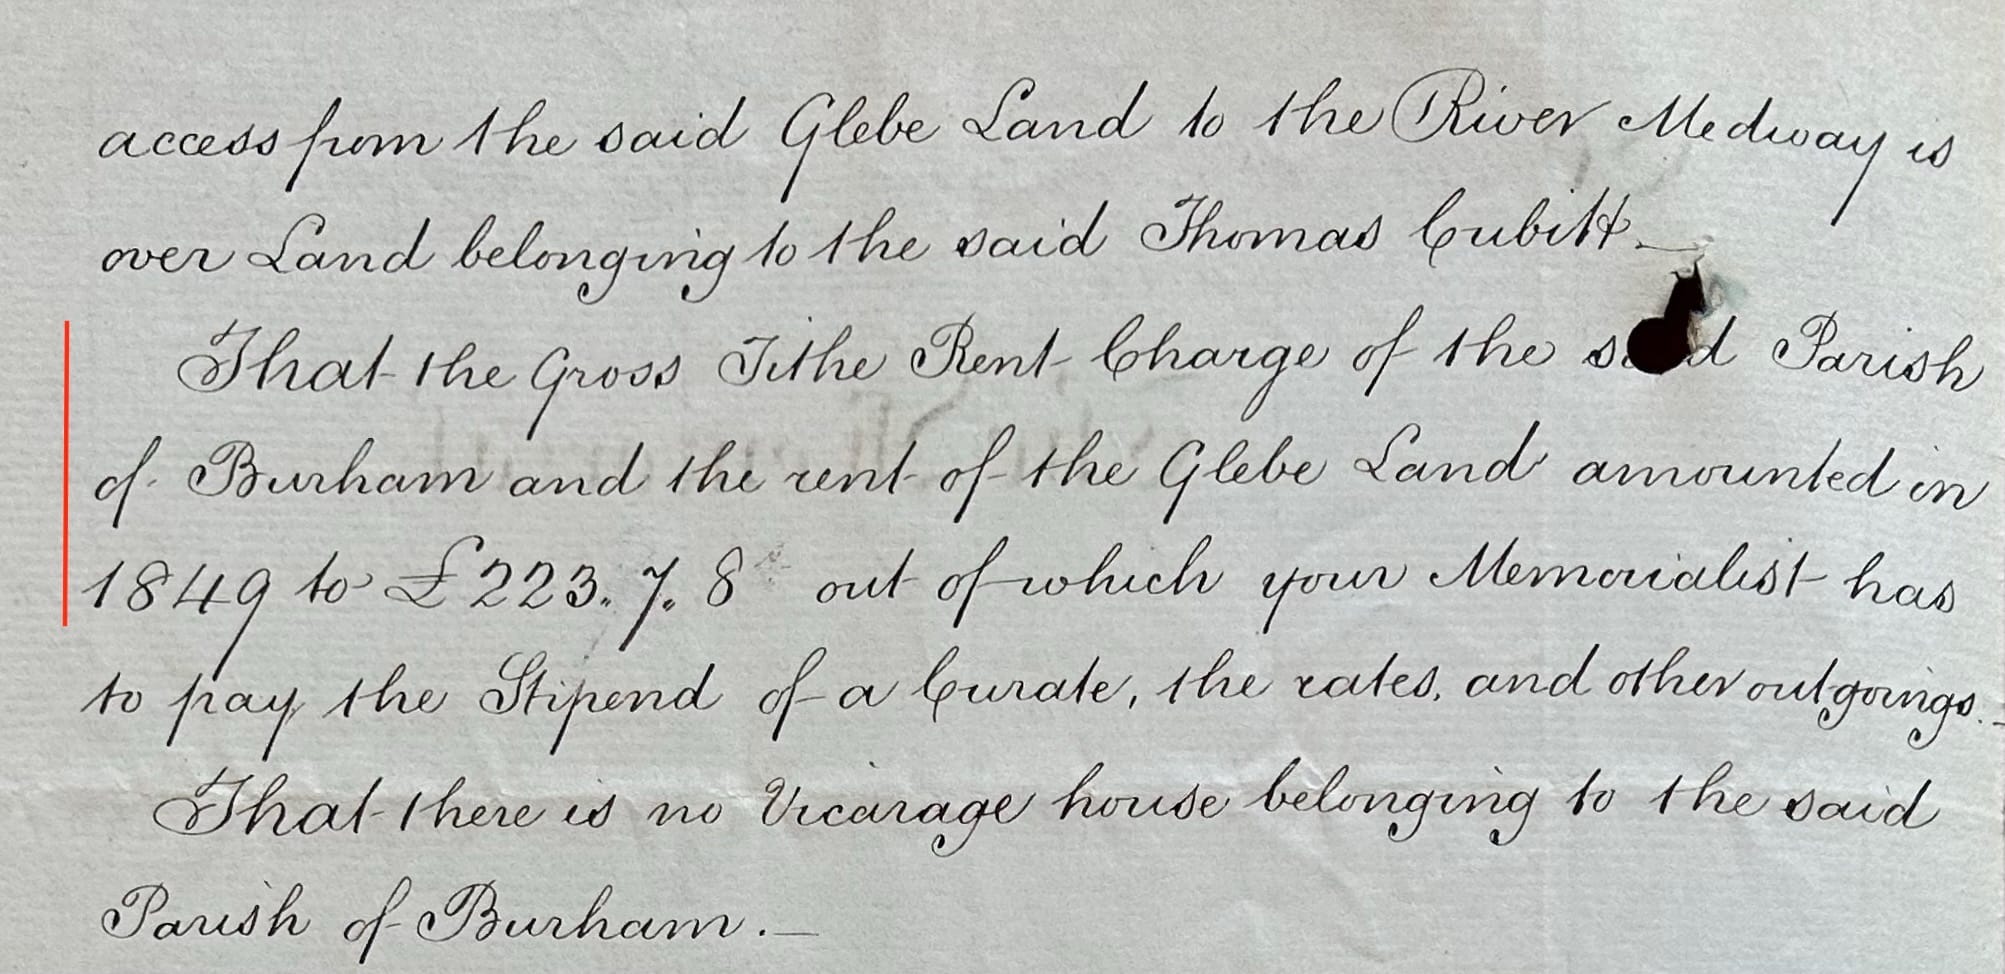 access from the said Glebe Land to the River Medway is
over Land belonging to the said Thomas Cubitt _
That the Gross Tithe Rent Charge of the said Parish
of Burham and the rent of the Glebe Land amounted in
1849 to £223. 7. 8 out of which your Memorialist has
to pay the Stipend of a Curate, the rates, and other outgoings. _
That there is no Vicarage house belonging to the said
Parish of Burham. _